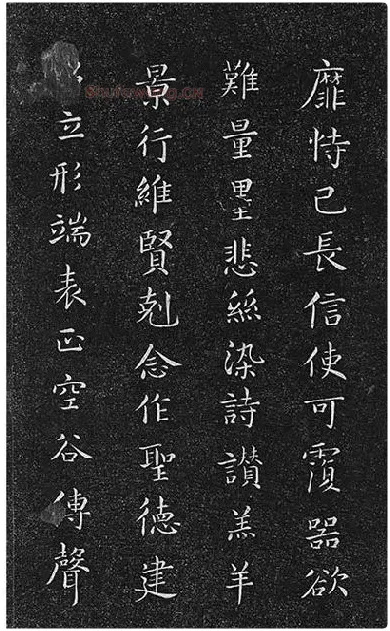 靡恃己長信使可覆器欲
難量墨悲絲染詩讃羔羊
景行維賢剋念作聖德建
立形端表正空谷傳聲